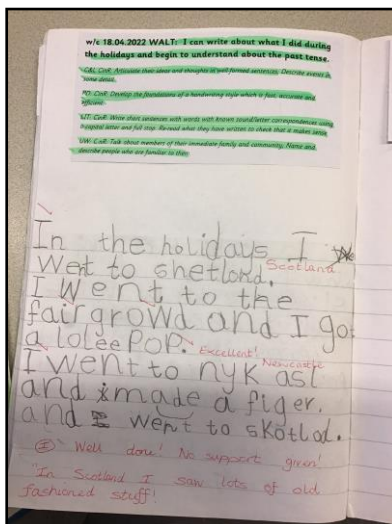 w/c 18.04.2022 WALT: I can write about what I did during
the holidays and begin to understand about the past tense.
C&L CnR: Articulate their ideas and thoughts in well-formed sentences. Describe events in
some detail.
PD: CnR: Develop the foundations of a handwriting style which is fast, accurate and
efficient.
LIT: CnR: Write short sentences with words with known sound/letter correspondences using
a capital letter and full stop. Re-read what they have written to check that it makes sense.
UW: CnR: Talk about members of their immediate family and community. Name and
describe people who are familiar to them.
In the holidays I
went to shetlond. Scotland
I went to the
fairgrowd and I got
a lolee POP. Excellent!
I went to nyk asl Newcastle
and made a figer.
and I went to skotlod.
I Well done! No support given!
"In Scotland I saw lots of old
fashioned stuff!